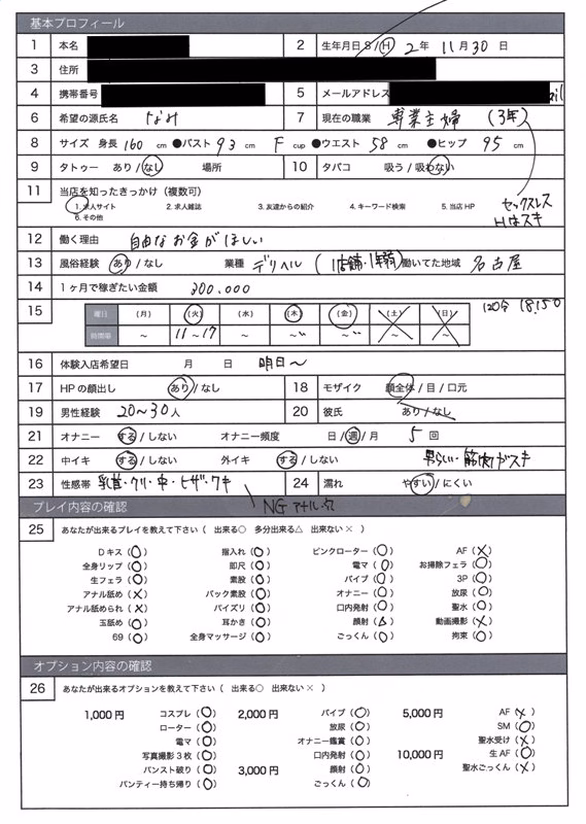 基本プロフィール
1 本名 2 生年月日 S / H 2年 11月 30日
3 住所
4 携帯番号 5 メールアドレス ail
6 希望の源氏名 なみ 7 現在の職業 専業主婦 (3年)
8 サイズ 身長 160 cm ●バスト 93 cm F cup ●ウエスト 58 cm ●ヒップ 95 cm
9 タトゥー あり / なし 場所 10 タバコ 吸う / 吸わない
11 当店を知ったきっかけ(複数可)
1. 求人サイト 2. 求人雑誌 3. 友達からの紹介 4. キーワード検索 5. 当店HP
6. その他
セックスレス
Hはスキ
12 働く理由 自由なお金がほしい
13 風俗経験 あり / なし 業種 デリヘル (1店舗・1年弱) 働いてた地域 名古屋
14 1ヶ月で稼ぎたい金額 300.000
15 曜日 (月) (火) (水) (木) (金) (土) (日) 120分
時間帯 ~ 11~17 ~ ~ ~ ~ ~
16 体験入店希望日 月 日 明日~
17 HPの顔出し あり / なし 18 モザイク 顔全体 / 目 / 口元
19 男性経験 20~30人 20 彼氏 あり / なし
21 オナニー する / しない オナニー頻度 日 / 週 / 月 5 回
22 中イキ する / しない 外イキ する / しない 男らしい・筋肉がスキ
23 性感帯 乳首・クリ・中・ヒザ・ワキ 24 濡れ やすい / にくい
NG アナル
プレイ内容の確認
25 あなたが出来るプレイを教えて下さい( 出来る○ 多分出来る△ 出来ない× )
Dキス (○) 指入れ (○) ピンクローター (○) AF (×)
全身リップ (○) 即尺 (○) 電マ (○) お掃除フェラ (○)
生フェラ (○) 素股 (○) バイブ (○) 3P (○)
アナル舐め (×) バック素股 (○) オナニー (○) 放尿 (○)
アナル舐められ (×) パイズリ (○) 口内発射 (○) 聖水 (○)
玉舐め (○) 耳かき (○) 顔射 (△) 動画撮影 (×)
69 (○) 全身マッサージ (○) ごっくん (○) 拘束 (○)
オプション内容の確認
26 あなたが出来るオプションを教えて下さい( 出来る○ 出来ない× )
1,000円 コスプレ (○) 2,000円 バイブ (○) 5,000円 AF (×)
ローター (○) 放尿 (○) SM (○)
電マ (○) オナニー鑑賞 (○) 聖水受け (×)
写真撮影3枚 (○) 口内発射 (○) 10,000円 生AF (○)
パンスト破り (○) 3,000円 顔射 (○) 聖水ごっくん (×)
パンティー持ち帰り (○) ごっくん (○)